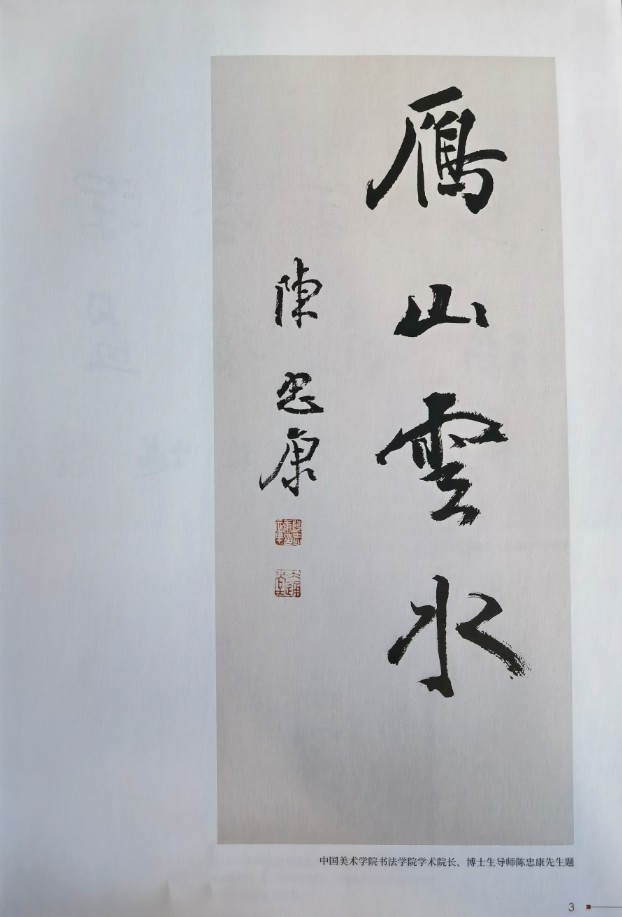 鴈山雲水
陳忠康
中国美术学院书法学院学术院长、博士生导师陈忠康先生题
3